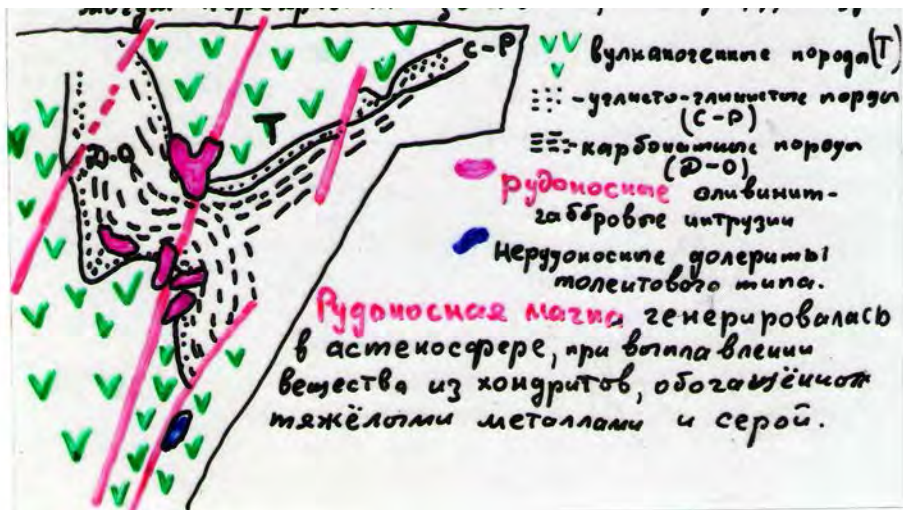 могут
С-Р
вулканогенные породы (Т)
Т
-углисто-глинистые порды
(С-Р)
D-O
-карбонатные породы
(D-O)
рудоносные оливинит-
габбровые интрузии
нерудоносные долериты
толеитового типа.
Рудоносная магма генерировалась
в астеносфере, при выплавлении
вещества из хондритов,
тяжёлыми металлами и серой.